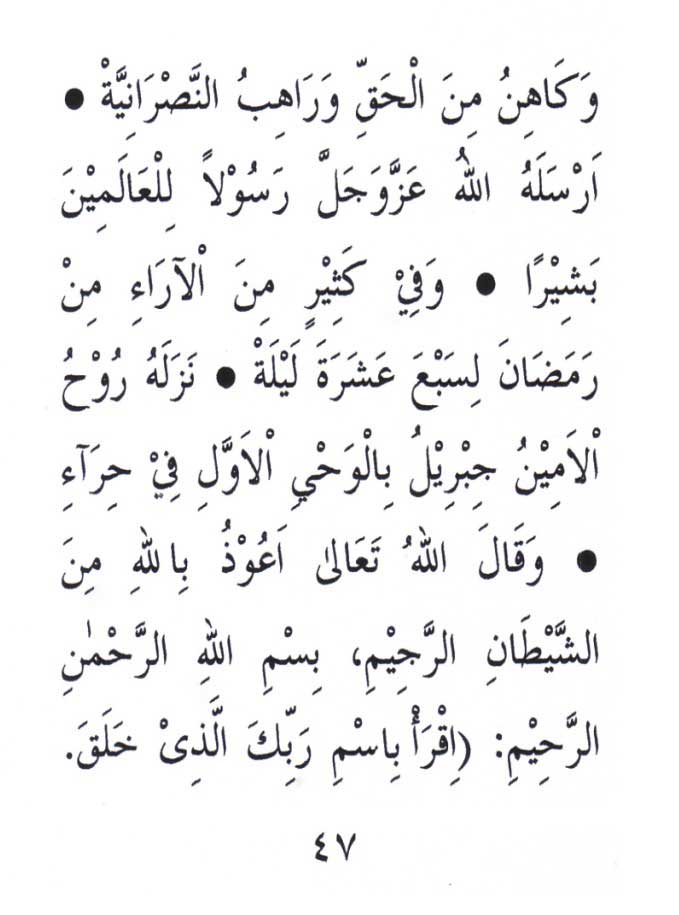 وَكَاهِنُ مِنَ الْحَقِّ وَرَاهِبُ النَّصْرَانِيَّةْ ●
اَرْسَلَهُ اللهُ عَزَّوَجَلَّ رَسُوْلاً لِلْعَالَمِيْنَ
بَشِيْرًا ● وَفِيْ كَثِيْرٍ مِنَ اْلآرَاءِ مِنْ
رَمَضَانَ لِسَبْعَ عَشَرَةَ لَيْلَةْ ● نَزَلَهُ رُوْحُ
اْلاَمِيْنُ جِبْرِيْلُ بِالْوَحْيِ اْلاَوَّلِ فِيْ حِرَآءِ
● وَقَالَ اللهُ تَعَالىٰ اَعُوْذُ بِاللهِ مِنَ
الشَّيْطَانِ الرَّجِيْمِ، بِسْمِ اللهِ الرَّحْمٰنِ
الرَّحِيْمِ: (اِقْرَأْ بِاسْمِ رَبِّكَ الَّذِىْ خَلَقَ.
٤٧